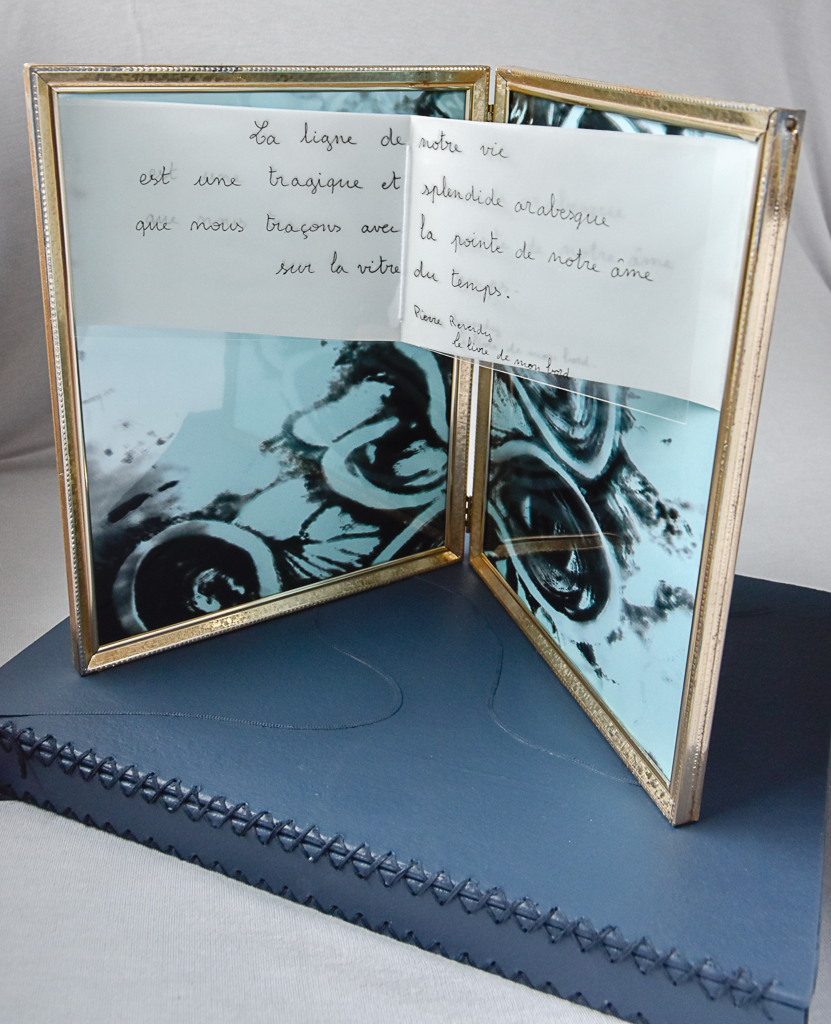 La ligne de notre vie
est une tragique et splendide arabesque
que nous traçons avec la pointe de notre âme
sur la vitre du temps.
Pierre Reverdy
le livre de mon bord